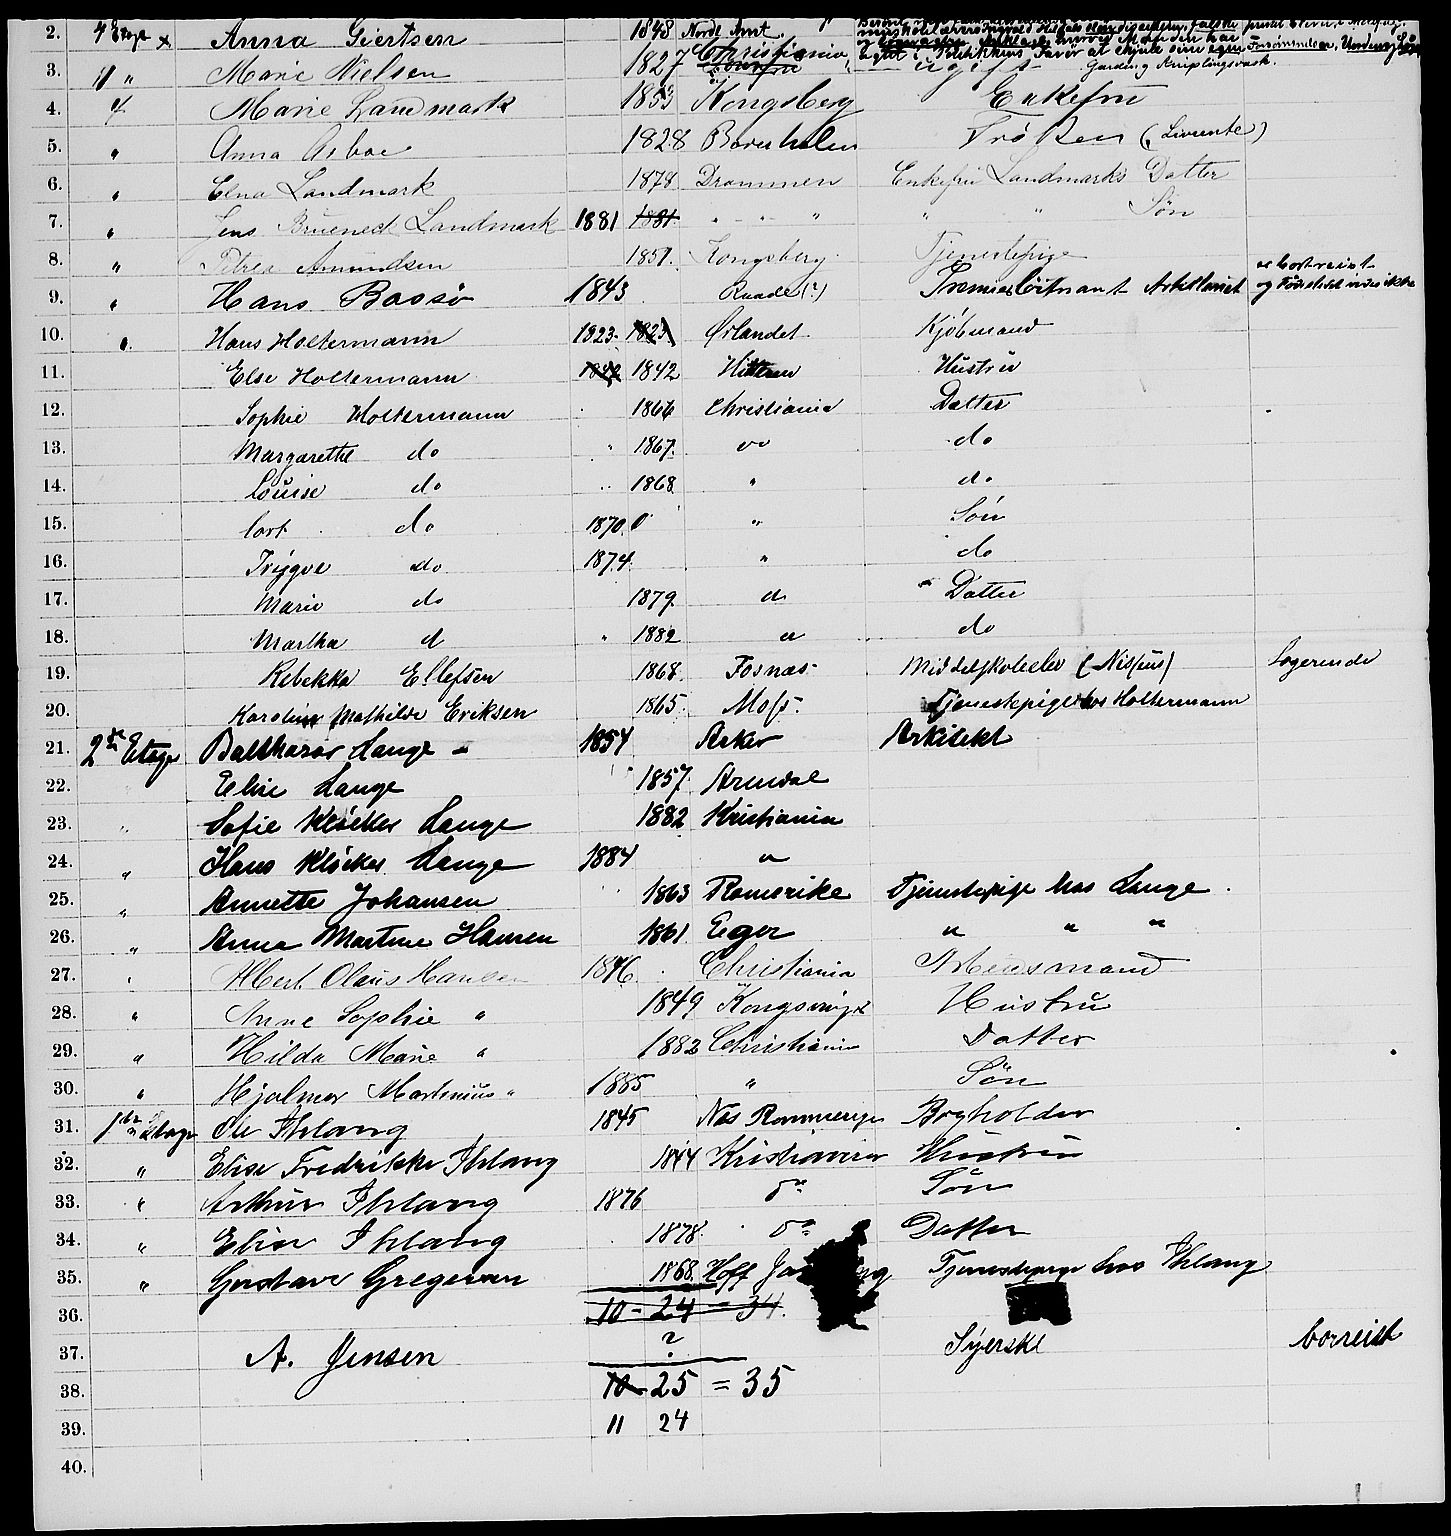 2. 4 Etage x Anna Giertsen 1848 Nordl. Amt
3. " " Marie Nielsen 1827 Christiania ugift
4. " Marie Landmark 1853 Kongsberg Enkefru
5. " Anna Asboe 1828 Bornholm Frøken (Livrente)
6. " Elna Landmark 1878 Drammen Enkefru Landmarks Datter
7. " Jens Landmark 1881 1881 " " " " " Søn
8. " Petrea Amundsen 1851. Kongsberg Tjenestepige
9. " Hans Bassø 1843 Raade (?) Premierløitnant Arkitekt er bortreist og Fødested vides ikke
10. " Hans Holtermann 1823. 1823 Ørlandet Kjøbmand
11. Else Holtermann 1842 1842 Hittern Hustru
12. Sophie Holtermann 1866 Christiania Datter
13. Margarethe do 1867. do do
14. Louise do 1868 " do
15. Cort do 1870. 0 " Søn
16. Trygve do 1874. " do
17. Marie do 1879. do Datter
18. Martha d 1882 " do
19. Rebekka Ellefsen 1868. Fosnæs Middelskoleelev (Nissens) Logerende
20. Karoline Mathilde Eriksen 1865. Moss. Tjenestepige hos Holtermann
21. 2den Etage Balthazar Lange 1854 Aker Arkitekt
22. Elise Lange 1857. Arendal
23. " Sofie Kløcker Lange 1882 Kristiania
24. " Hans Kløcker Lange 1884 "
25. " Annette Johansen 1863 Romerike Tjenestepige hos Lange.
26. " Anna Martine Hansen 1861. Eger " " "
27. " Albert Olaus Hansen 1846. Christiania Arbeidsmand
28. " Anne Sophie " 1849 Kongsvinger Hustru
29. " Hilda Marie " 1882 Christiania Datter
30. " Hjalmar Martinius " 1885 " Søn
31. 1ste Etage Ole Ihlang 1845 Næs Rommerige
32. " Elise Fredrikke Ihlang 1844 Kristiania Hustru
33. " Arthur Ihlang 1876 do Søn
34. " Elise Ihlang 1878. do Datter
35. " Gustava Gregersen 1868. Hoff Tjenestepige hos Ihlang
36. 10 - 24 = 34.
37. A. Jensen ? Syerske bortreist
38. 10 - 25 = 35
39. 11 24
40.